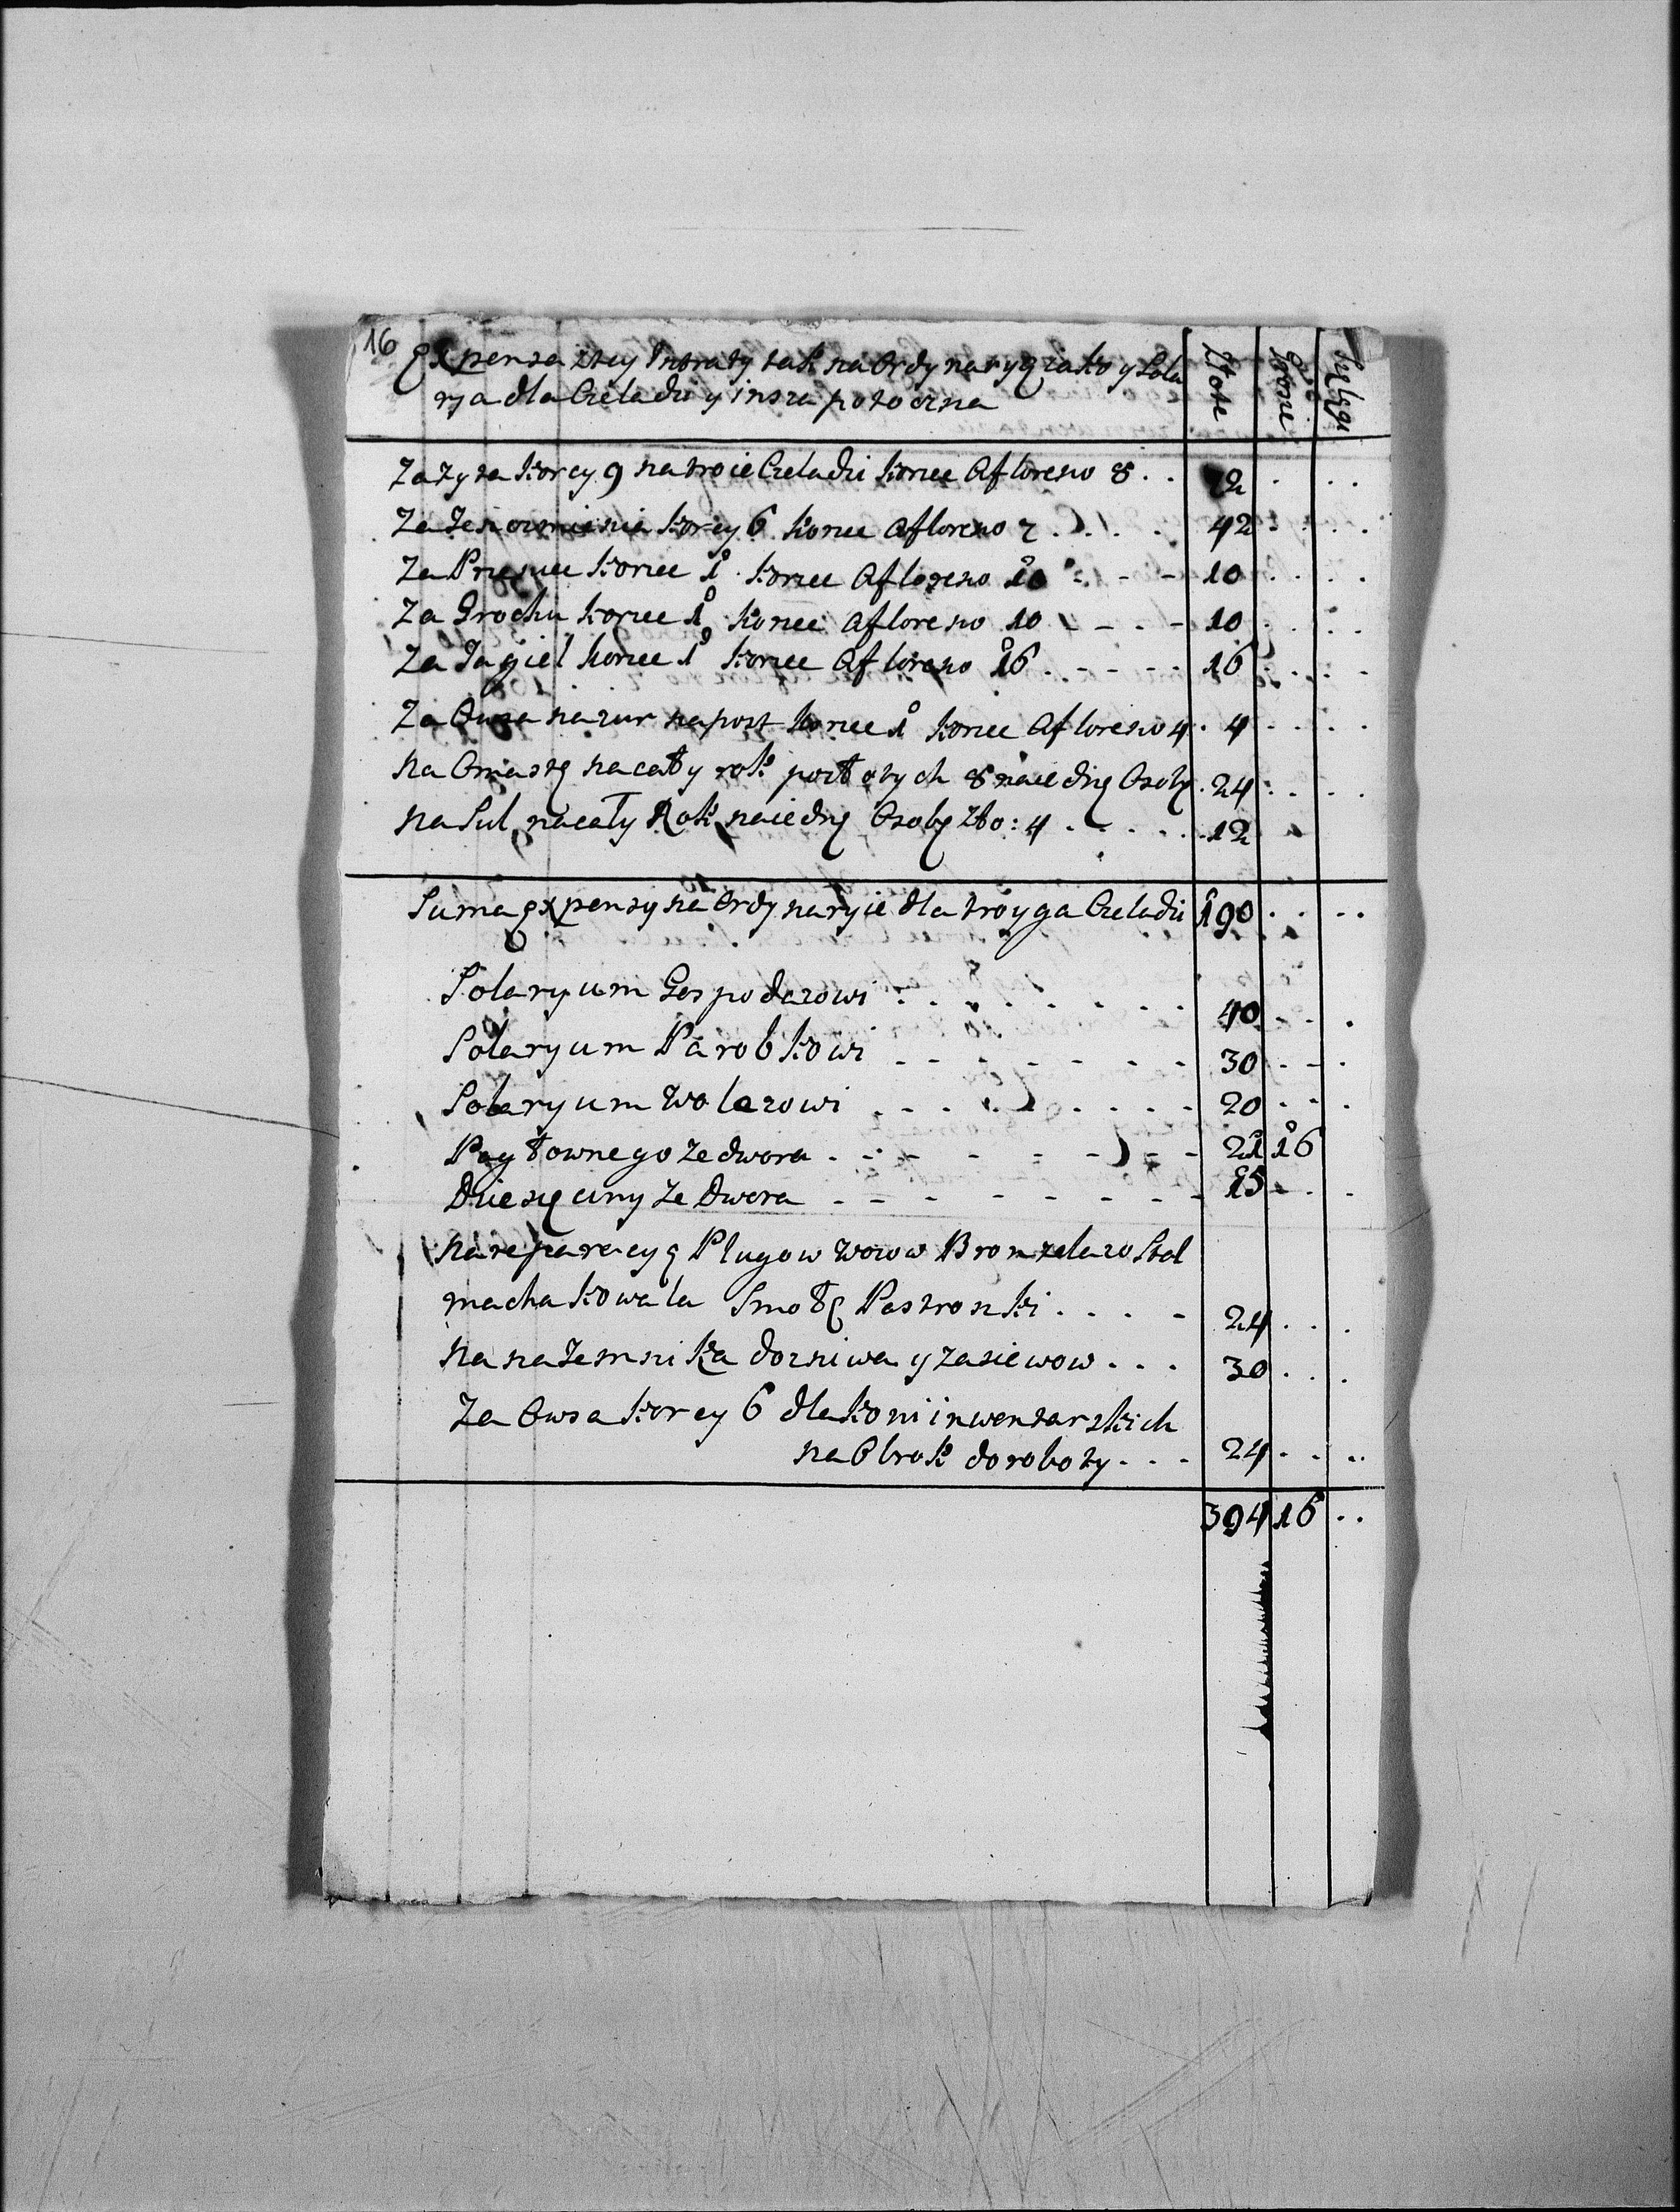 16
Expensa ztey Intraty tak na Ordynaryą iako y Sola
rya dla Czeladzi y insza potoczna
Złote Grosze Szelągi
Za zyta korcy 9 na troie Czeladzi korzec a floreno 8 . . 72 . . .
Za Jenczmienia korcy 6 korzec a floreno 7 . . . . 42 . . . .
Za Przenice korzec 1 korzec a floreno 10 - - - 10 . . . .
Za Grochu korzec 1 korzec a floreno 10 - - . - 10 . . . .
Za Jagiel korzec 1 korzec a floreno 16 . - - - - 16 . . . .
Za Owsa na zur na post korzec 1 korzec a floreno 4 . 4 . . . .
na Omastę na cały rok po złotych 8 na iedną Osobę . 24 . . . .
na Sul na cały Rok na iedną Osobę zło: 4 . . . . . . 12
Suma expensy na Ordynaryie dla troyga Czeladzi 190 . . . .
Solaryum Gospodarowi . . . . . . . 40 - - .
Solaryum Parobkowi - - - - - - - 30 - - .
Solaryum Wolarowi . . . . . . . . - 20 . . .
Pogłownego ze dwora . - - - - - - - - 21 16
Dziesięciny ze Dwora . - - - - - - - - 15 - . .
na reparacyę Plugow wozow Bron zelazo Stel
macha kowala Smołę Postronki . . . . - 24 . . .
Na naJemnika do zniwa y zasiewow . . . 30 . . .
Za Owsa korcy 6 dla koni inwentarzkich
na Obrok do roboty . . . 24 . . . .
394 16 . .